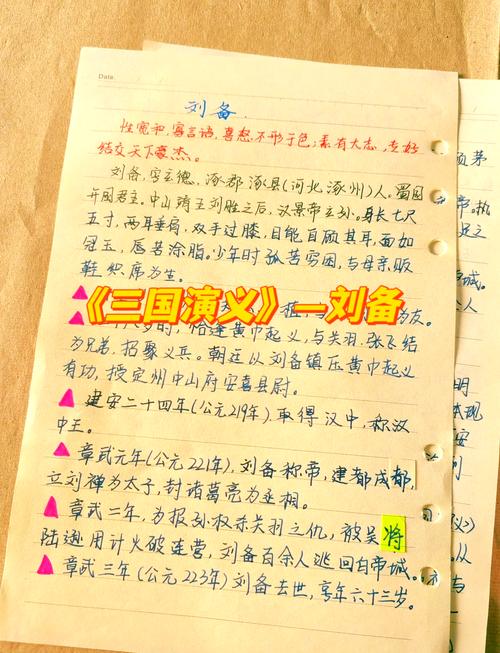 Date.
刘备.
性宽和,寡言语,喜怒不形于色;素有大志,专好
结交天下豪杰。
刘备,字玄德,涿郡涿县(河北,涿州)人。蜀国
开国君主。中山靖王刘胜之后,汉景帝玄孙。身长七尺
五寸,两耳垂肩,双手过膝,目能自顾其耳,面如
冠玉,唇若涂脂。少年时孤苦穷困,与母亲贩
鞋织席为生。
《三国演义》—刘备
植,
为友。
岁时,恰逢黄巾起义,与关羽.张飞结
为兄弟,招聚义兵。朝廷以刘备镇压黄巾起义
有功,授定州中山府安喜县尉。
建安二十四年(公元219年)取得汉中,称汉
中王。
章武元年(公元221年),刘备称帝,建都成都,
立刘禅为太子,封诸葛亮为丞相。
章武二年,为报孙权杀关羽之仇,被吴将
陆逊用计火破连营,刘备百余人逃回白帝城。
章武三年(公元223年)刘备去世,享年六十三岁。